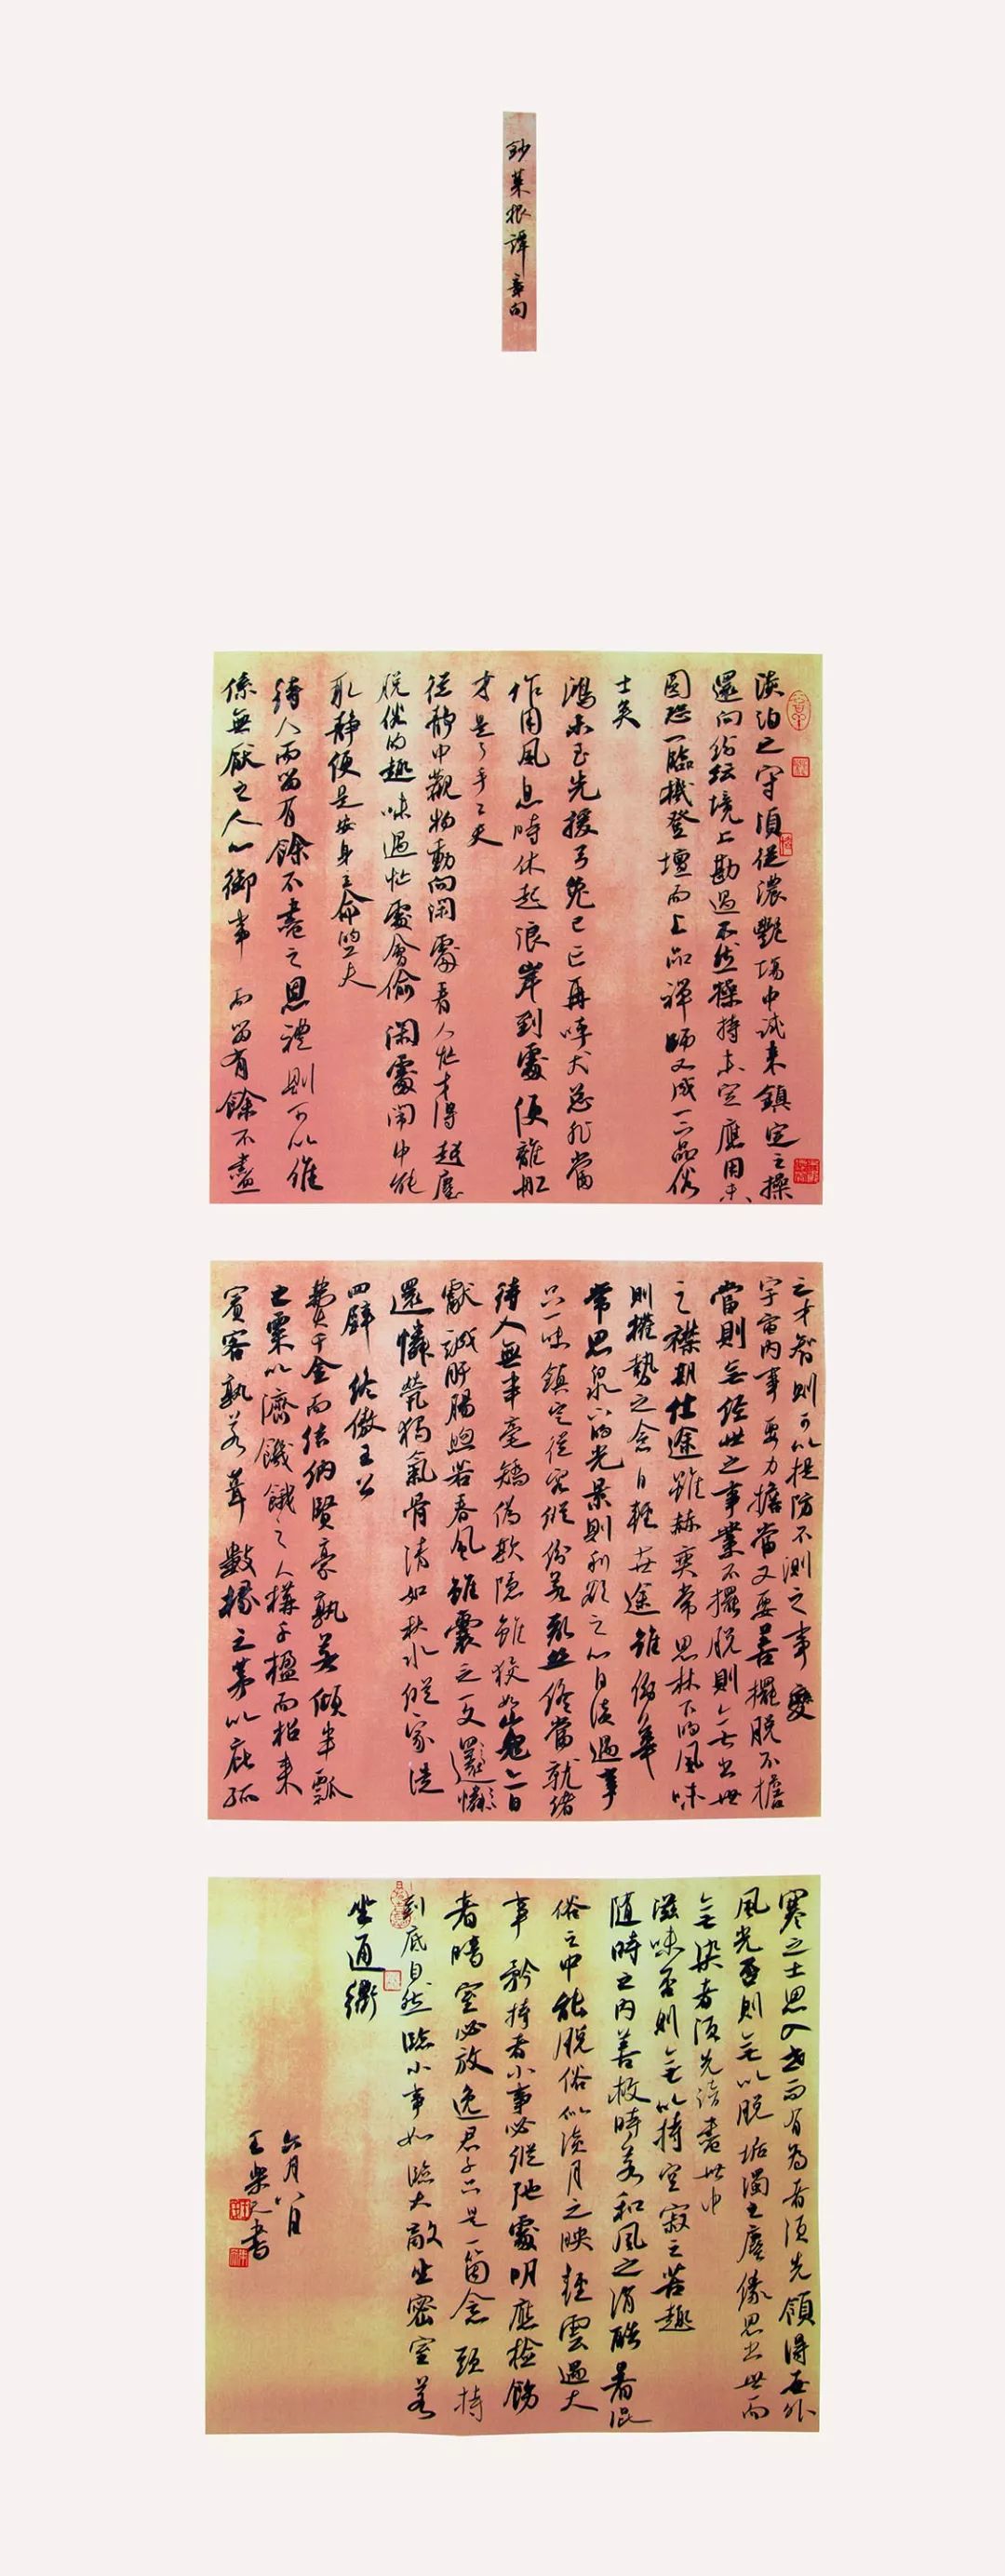 鈔菜根譚章句
淡泊之守須從濃艷場中試來鎮定之操
還向紛紜境上勘過不然操持未定應用未
圓恐一臨機登壇而上品禪師又成一下品俗
士矣
鴻未至先援弓兔已亡再呼犬總非當
作用風息時休起浪岸到處便離船
才是了手工夫
從靜中觀物動向閑處看人忙才得超塵
脫俗的趣味遇忙處會偷閑處鬧中能
取靜便是安身立命的工夫
待人而留有餘不盡之恩禮則可以維
係無厭之人心御事而留有餘不盡
之才智則可以提防不測之事變
宇宙內事要力擔當又要善擺脫不擔
當則無經世之事業不擺脫則無出世
之襟期仕途雖赫奕常思林下的風味
則權勢之念自輕世途雖紛華
常思泉下的光景則利欲之心自淡遇事
只一味鎮定從容縱紛若亂絲終當就緒
待人無半毫矯偽欺隱雖狡如山鬼亦自
獻誠肝腸煦若春風雖囊乏一文還憐
還憐煢獨氣骨清如秋水縱家徒
四壁終傲王公
費千金而結納賢豪孰若傾半瓢
之粟以濟饑餓之人構千楹而招來
賓客孰若葺數椽之茅以庇孤
寒之士思入世而有為者須先領得世外
風光否則無以脫垢濁之塵緣思出世而
無染者須先諳盡世中
滋味否則無以持空寂之苦趣
隨時之內善救時若和風之消酷暑混
俗之中能脫俗似淡月之映輕雲過大
事矜持者小事必縱弛處明庭檢飭
者暗室必放逸君子只是一個念頭持
到底自然臨小事如臨大敵坐密室若
坐通衢
六月八日
王學元書